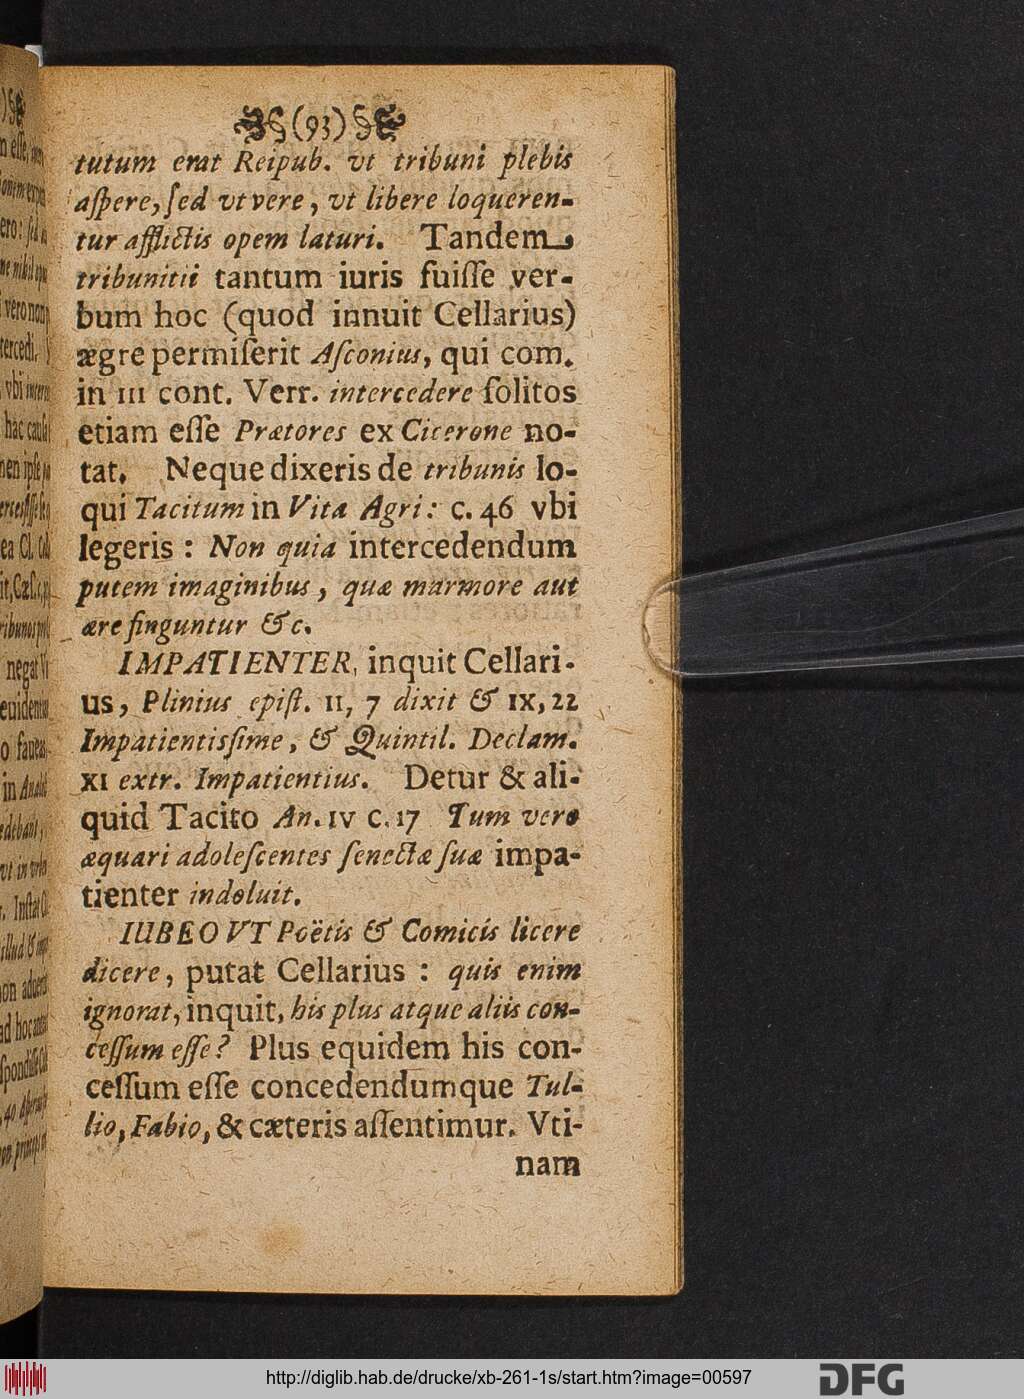 (93)
tutum erat Reipub. vt tribuni plebis
aſpere, ſed vt vere, vt libere loqueren-
tur afflictis opem laturi. Tandem
tribunitii tantum iuris fuiſſe ver-
bum hoc (quod innuit Cellarius)
ægre permiſerit Aſconius, qui com.
in III cont. Verr. intercedere ſolitos
etiam eſſe Prætores ex Cicerone no-
tat. Neque dixeris de tribunis lo-
qui Tacitum in Vita Agri: c. 46 vbi
legeris: Non quia intercedendum
putem imaginibus, quæ marmore aut
ære finguntur &c.
IMPATIENTER, inquit Cellari-
us, Plinius epiſt. II, 7 dixit & IX, 22
Impatientisſime, & Quintil. Declam.
XI extr. Impatientius. Detur & ali-
quid Tacito An. IV c. 17 Tum vero
æquari adoleſcentes ſenectæ ſuæ impa-
tienter indoluit.
IUBEO VT Poëtis & Comicis licere
dicere, putat Cellarius: quis enim
ignorat, inquit, his plus atque aliis con-
ceſſum eſſe? Plus equidem his con-
ceſſum eſſe concedendumque Tul-
lio, Fabio, & cæteris aſſentimur. Vti-
nam
http://diglib.hab.de/drucke/xb-261-1s/start.htm?image=00597
DFG